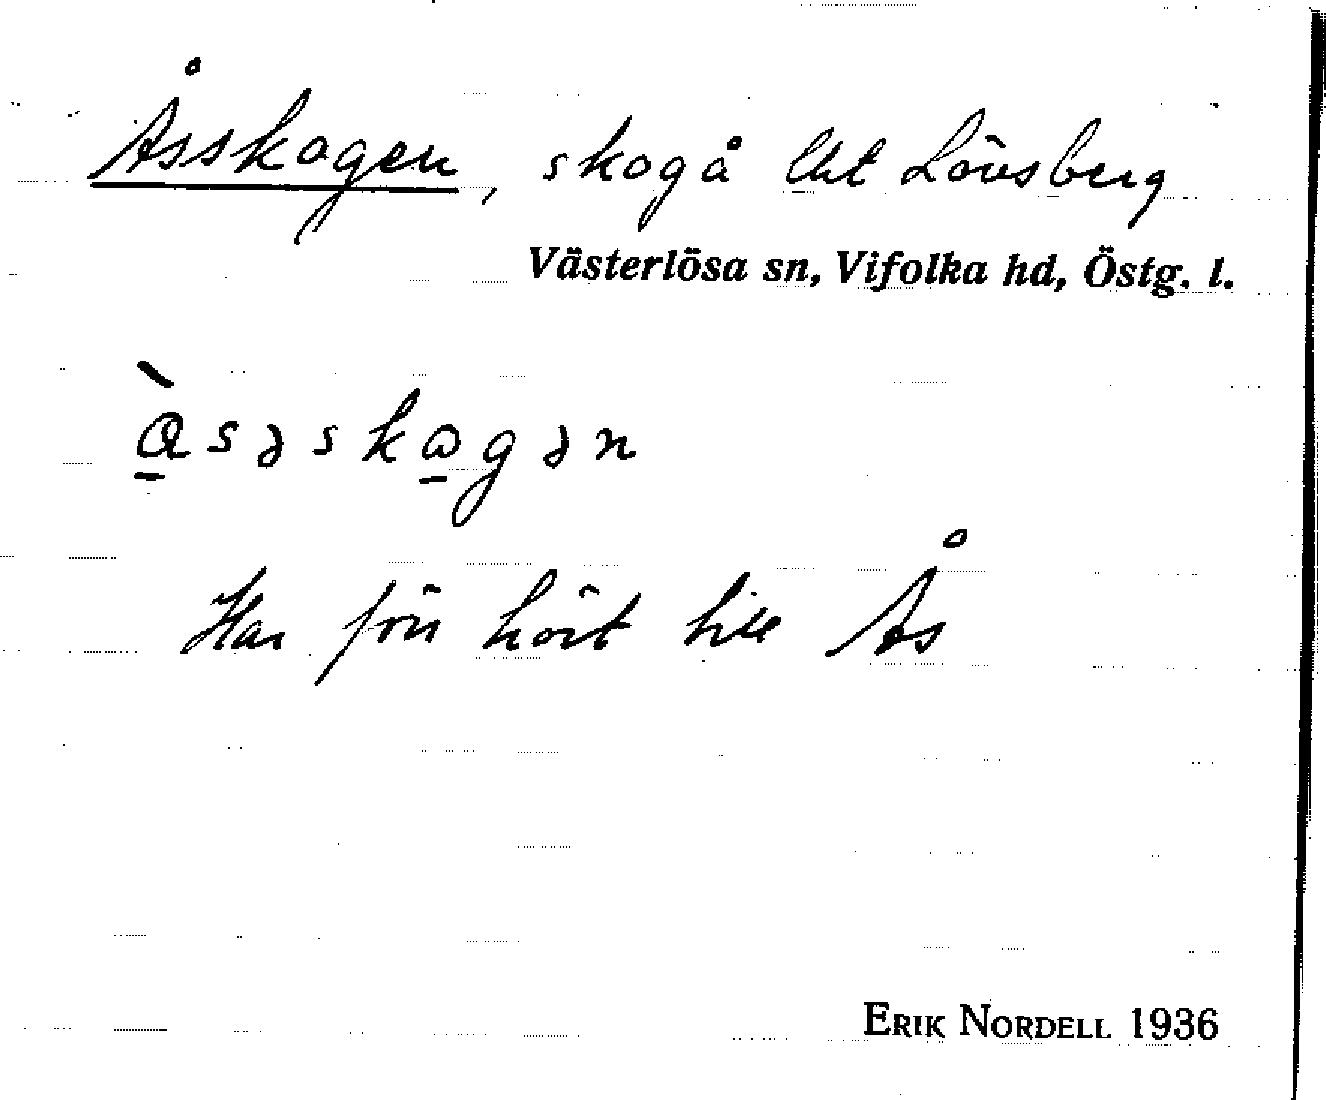 Åsskogen, skog å Lht Lövsberg
Västerlösa sn, Vifolka hd, Östg. l.
ɑ̀sɘskɷgɘn
Har förr hört till Ås
ERIK NORDELL 1936